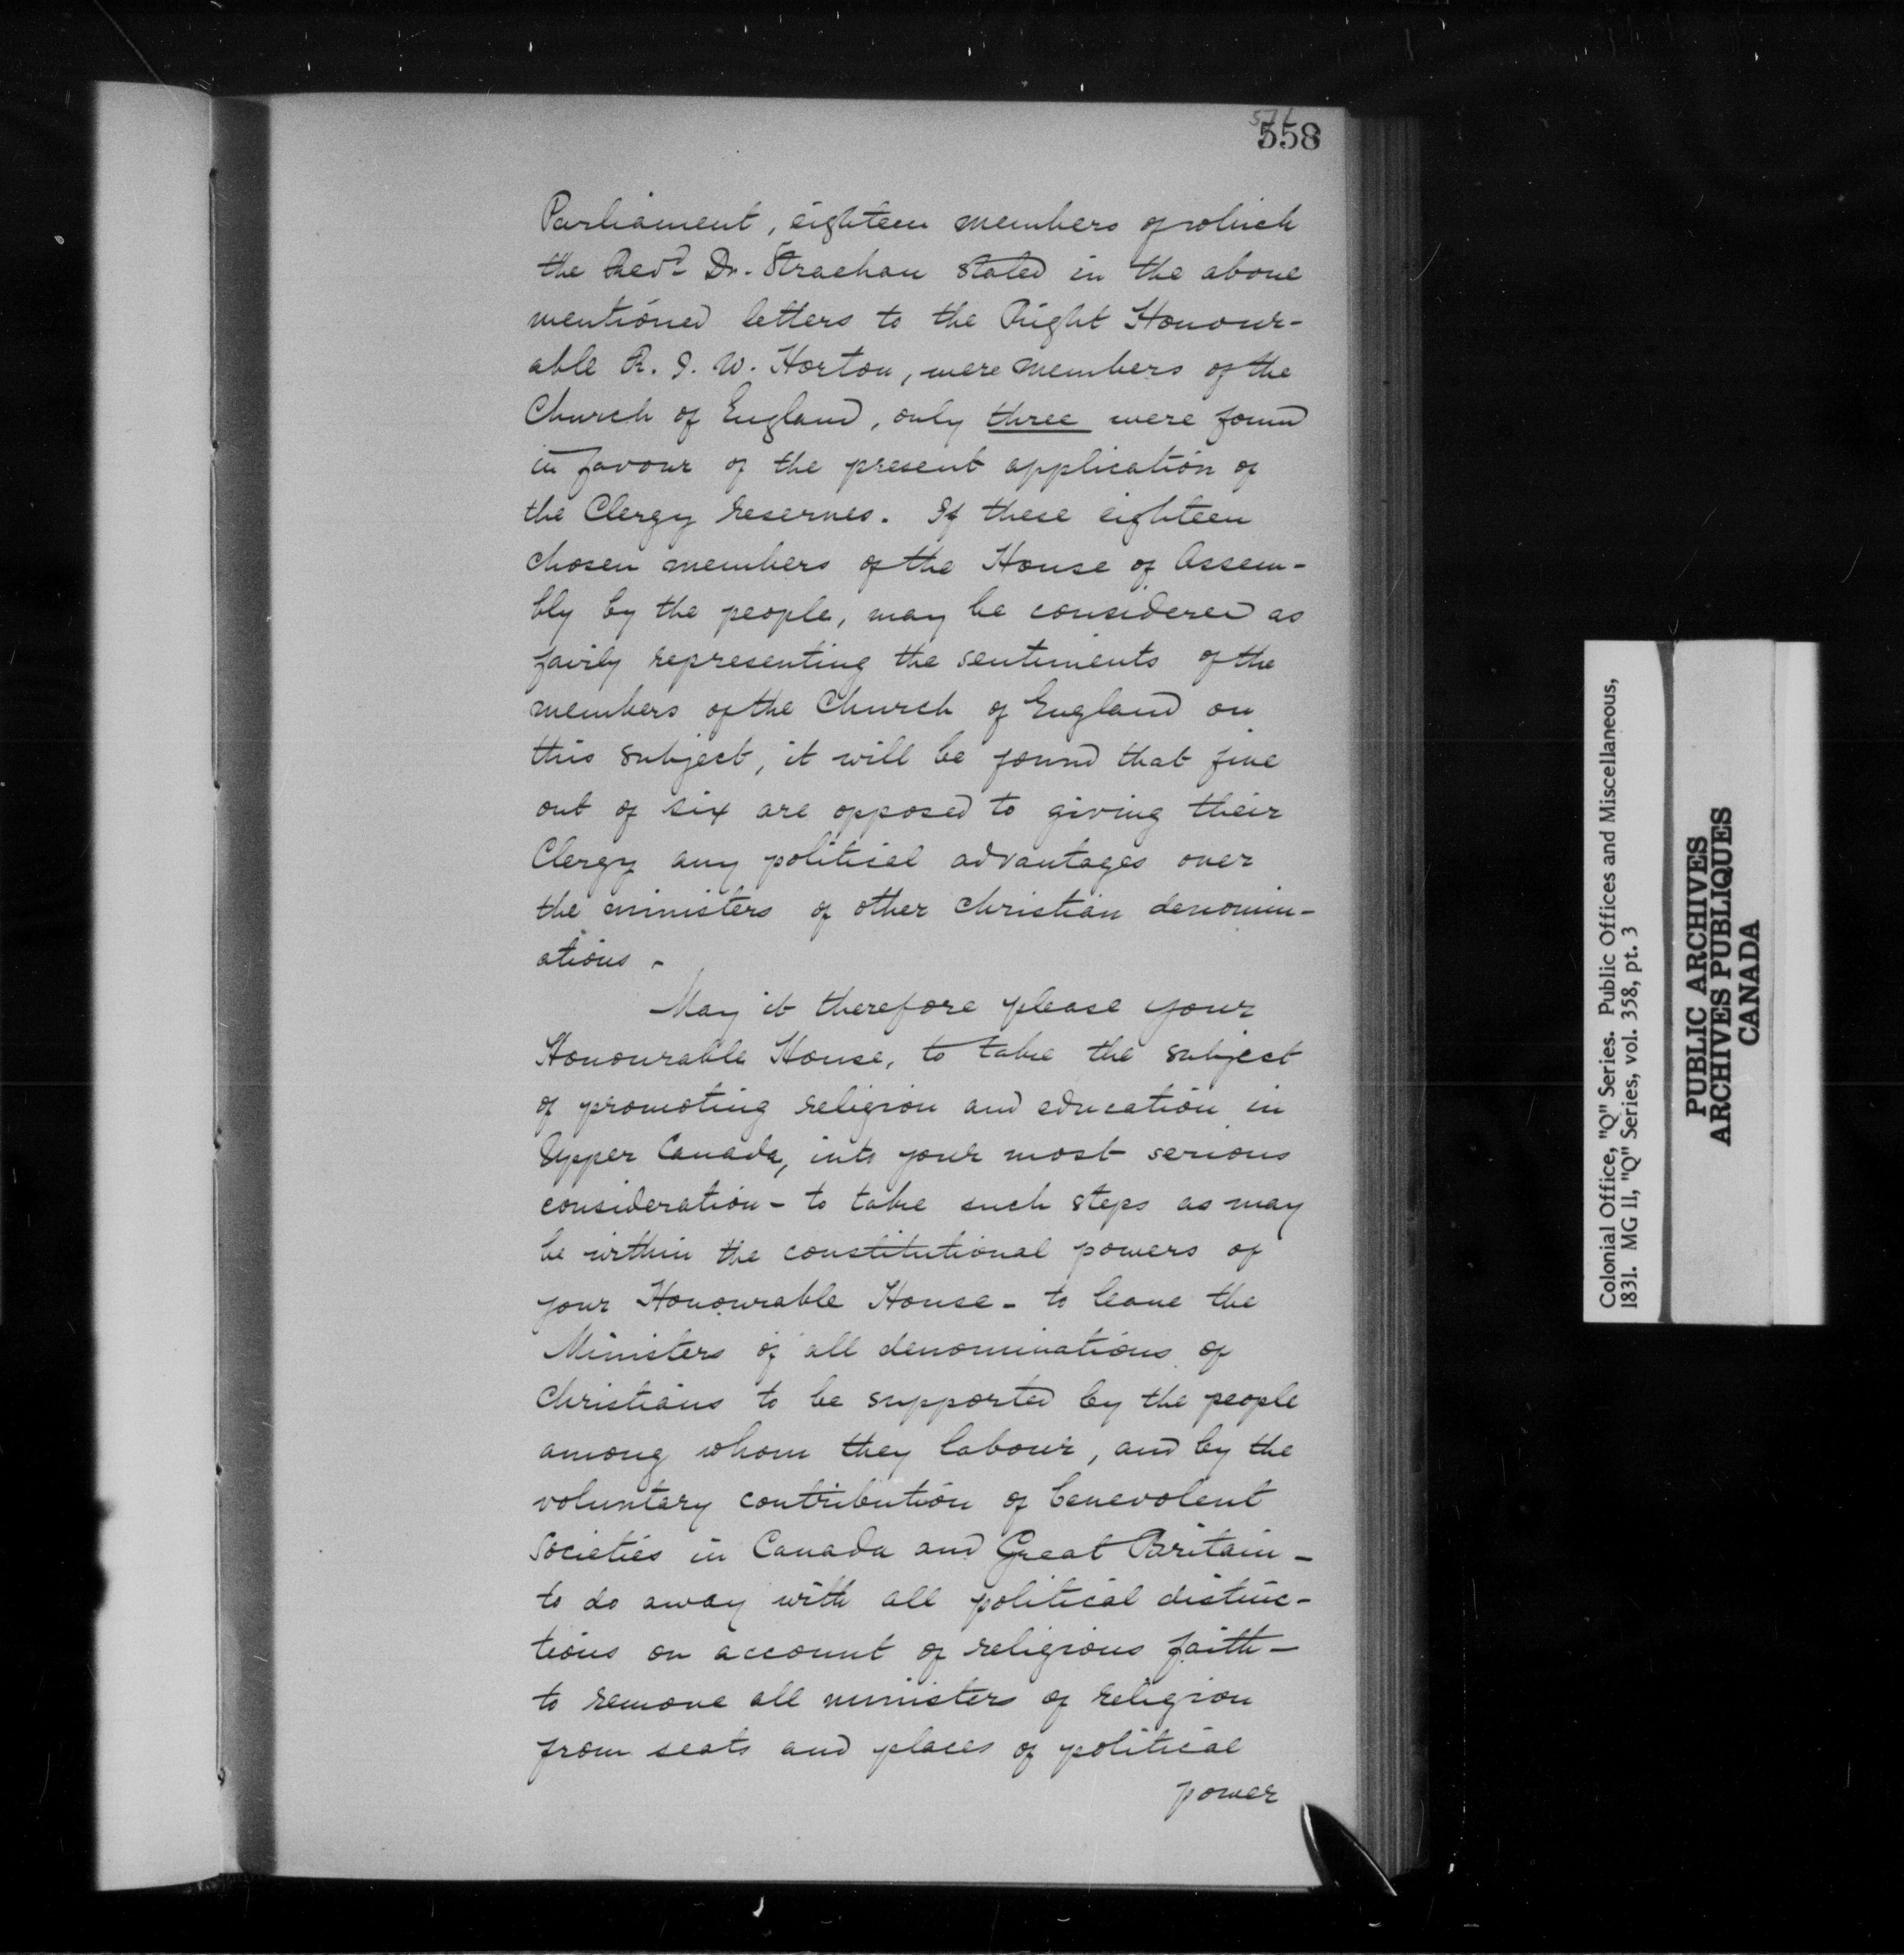 558
Parliament, eighteen members of which
the Revd Dr. Strachan stated in the above
mentioned letters to the Right Honour-
able R. J. W. Horton, were members of the
Church of England, only three were found
in favour of the present application of
the Clergy reserves. If these eighteen
chosen members of the House of Assem-
bly by the people, may be considered as
fairly representing the sentiments of the
members of the Church of England on
this subject, it will be found that five
out of six are opposed to giving their
Clergy any political advantages over
the ministers of other christian denomin-
ations -
May it therefore please your
Honourable House, to take the subject
of promoting religion and education in
Upper Canada, into your most serious
consideration - to take such steps as may
be within the constitutional powers of
your Honourable House - to leave the
Ministers of all denominations of
Christians to be supported by the people
among whom they labour, and by the
voluntary contribution of benevolent
Societies in Canada and Great Britain -
to do away with all political distinc-
tions on account of religious faith -
to remove all ministers of religion
from seats and places of political
power
Colonial Office, "Q" Series. Public Offices and Miscellaneous,
1831. MG 11, "Q" Series, vol. 358, pt. 3
PUBLIC ARCHIVES
ARCHIVES PUBLIQUES
CANADA